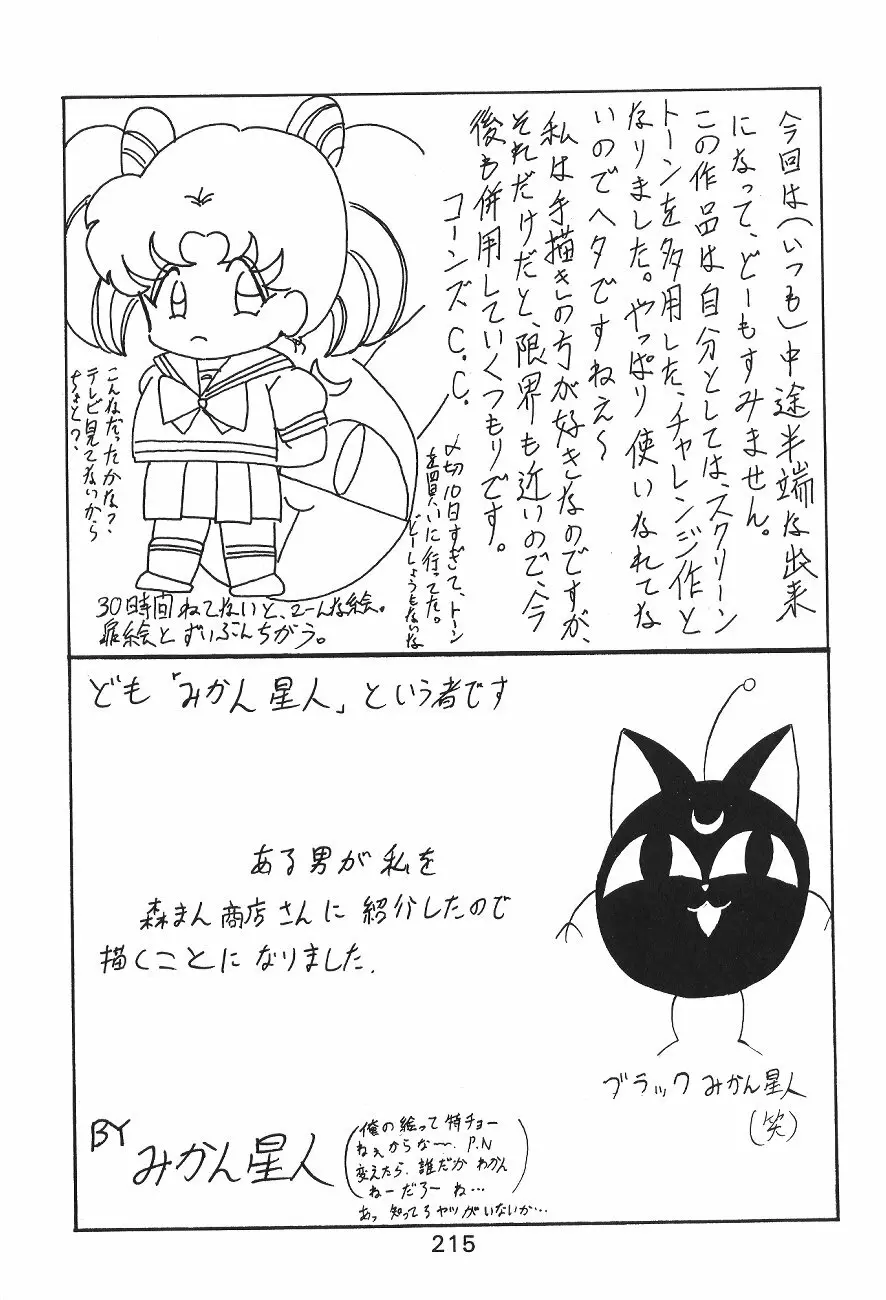 今回は(いつも)中途半端な出来
になって、どーもすみません。
この作品は自分としては、スクリーン
トーンを多用した、チャレンジ作と
なりました。やっぱり使いなれてな
いのでヘタですねえ〜
私は手描きの方が好きなのですが、
それだけだと、限界も近いので、今
後も併用していくつもりです。
コーンズC.C.
〆切10日すぎて、トーン
を買いに行ってた。
どーしょうもないな
こんなだったかな?
テレビ見てないから
ちょっと?、
30時間ねてないと、こーんな絵。
扉絵とずいぶんちがう。
ども「みかん星人」という者です
ある男が私を
森まん商店さんに紹介したので
描くことになりました.
ブラックみかん星人
(笑)
BY
みかん星人
(俺の絵って特チョー
ねぇからな〜. P.N
変えたら、誰だかわかん
ねーだろーね…)
あっ知ってるヤツがいないか…
215